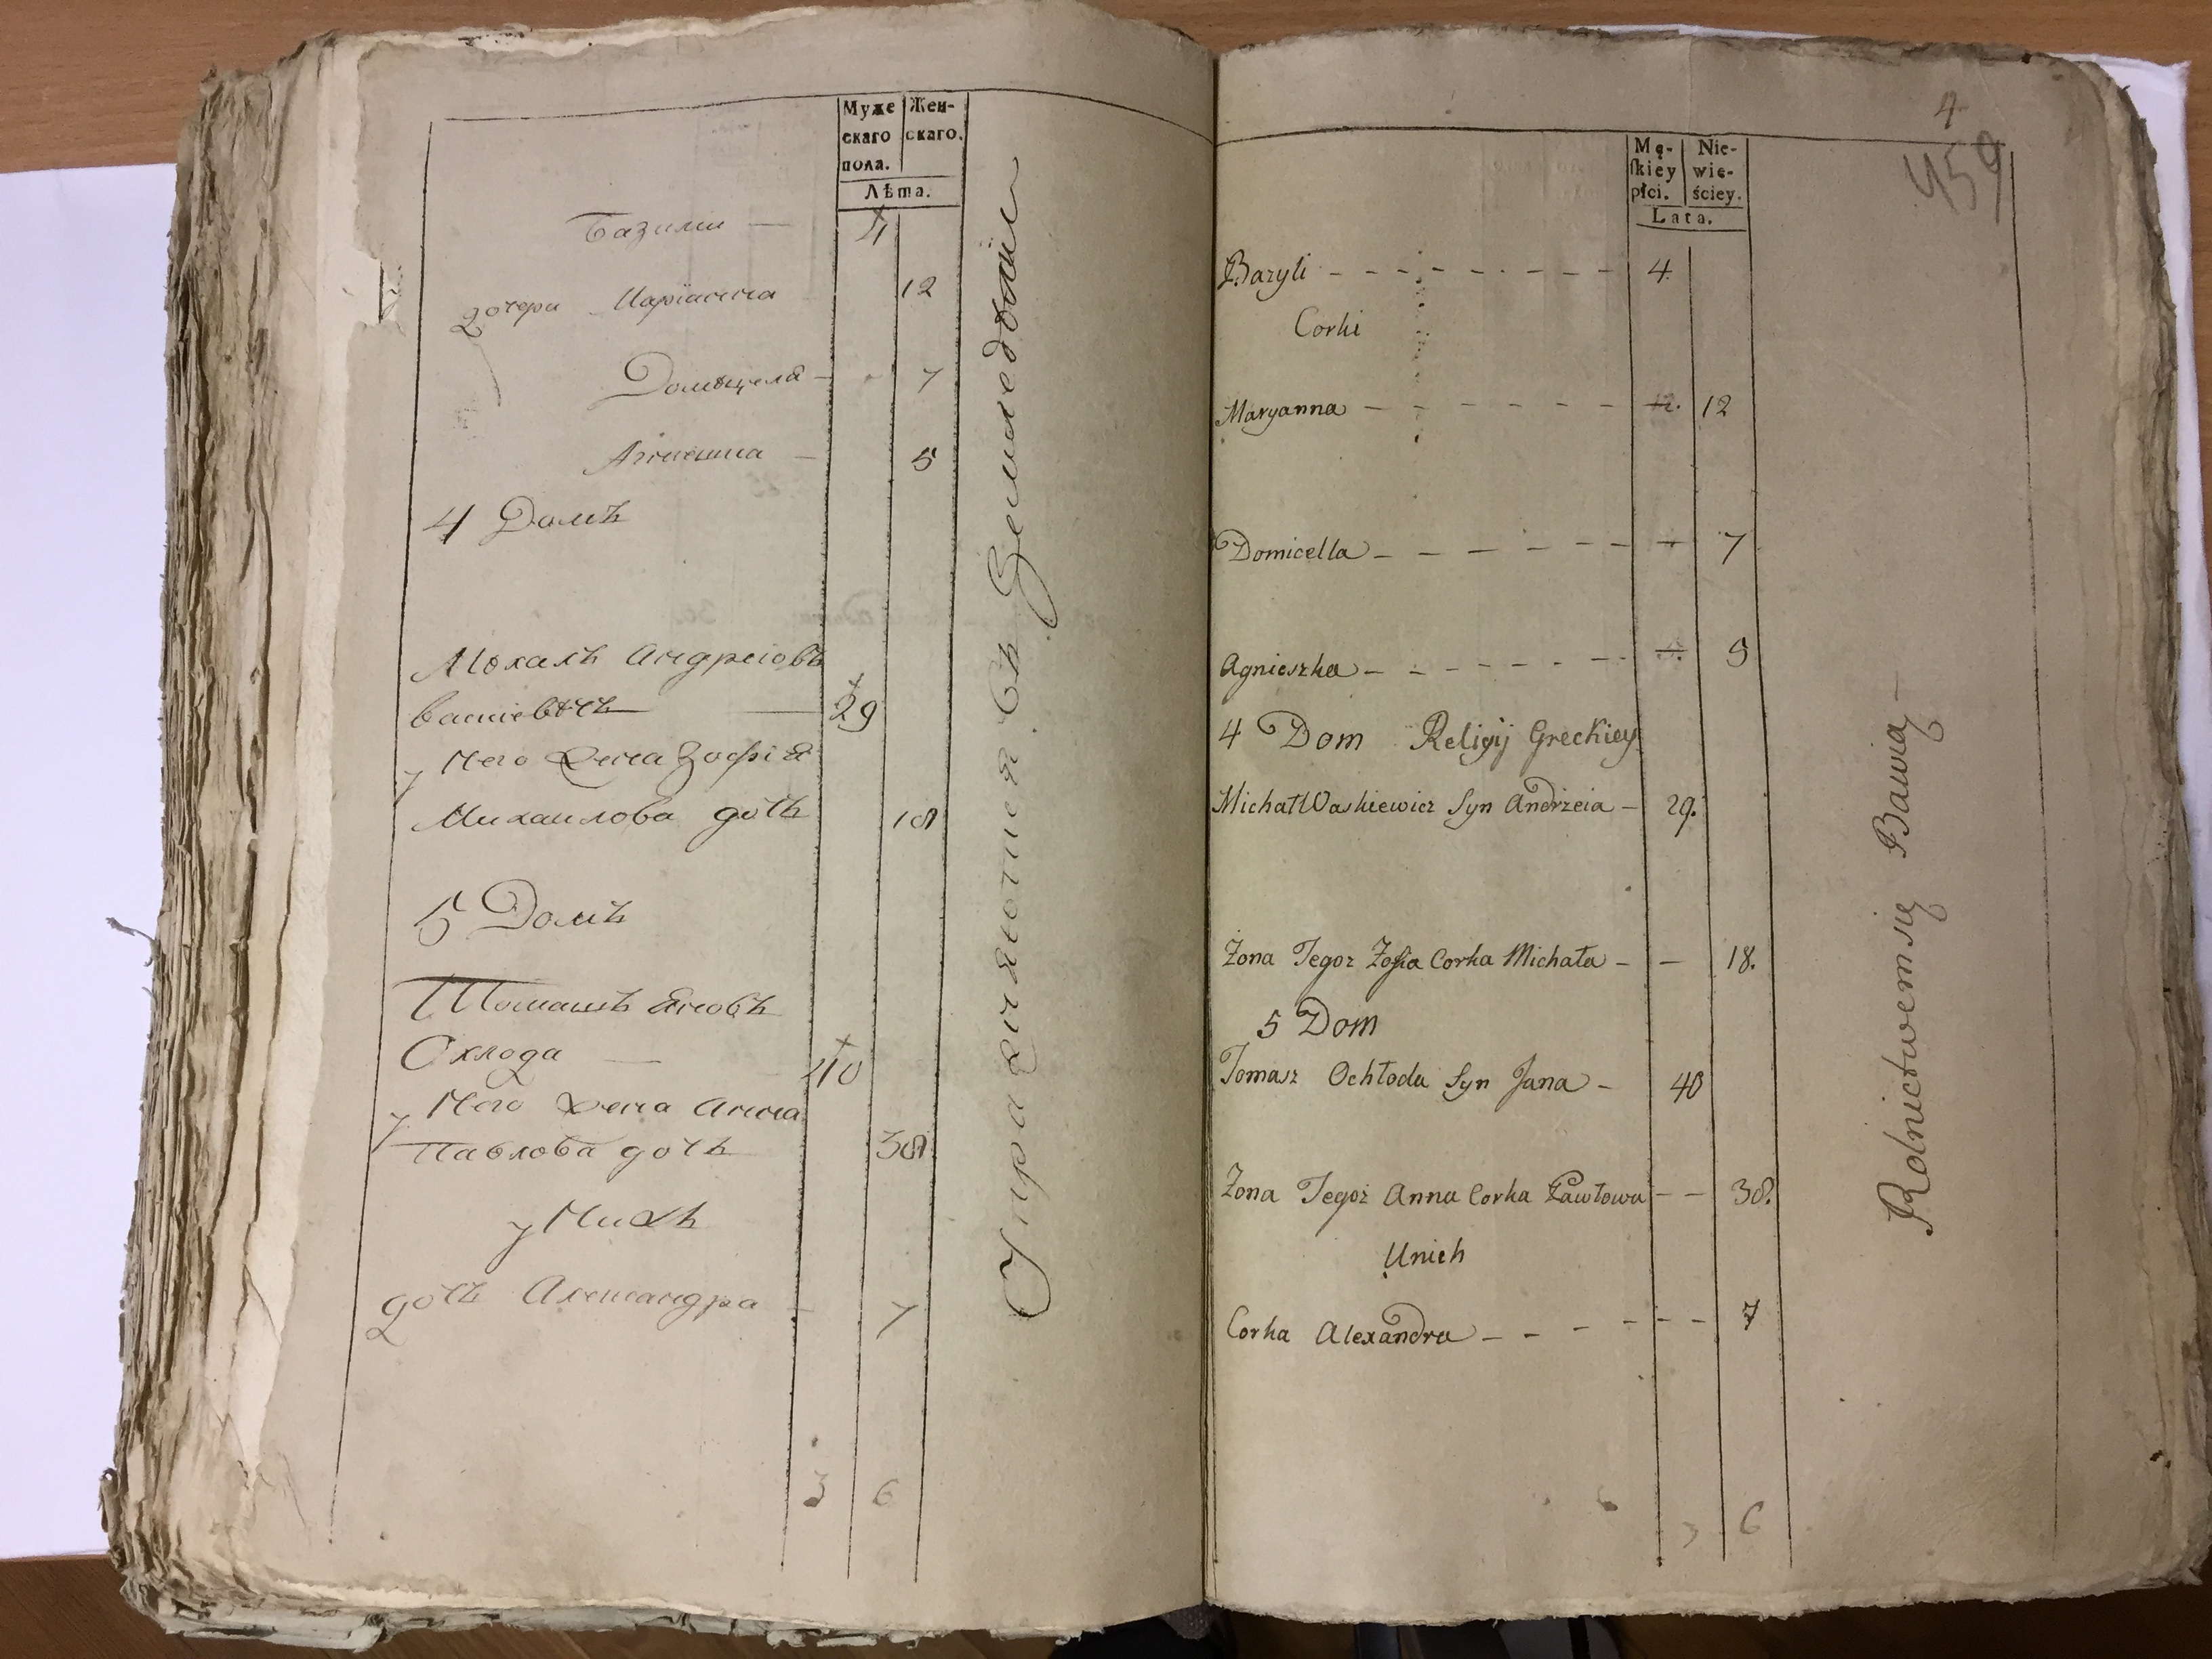 Муже
скаго
пола.
Жен-
скаго.
Лѣта.
Базили — 4
дочери Маріанна 12
Домицеля — 7
Агнешка — 5
4 Домъ
Михалъ Андреіовъ
Васкевичъ — 29
у Него Жена Зофія
Михаилова дочь 18
5 Домъ
Томашъ Яновъ
Охлода — 40
у Него Жена Анна
Павлова дочь 38
у Нихъ
дочь Александра — 7
3 6
Упражняются въ Земледѣліи
4
459
Mę-
ſkiey
płci.
Nie-
wie-
ściey.
Lata.
Bazyli - - - - - - - - 4.
Corki
Maryanna - - - - - - - 12. 12
Domicella - - - - - - - 7
Agnieszka - - - - - - - 5
4 Dom Religij Greckiey
Michał Waskiewicz Syn Andrzeia - 29.
Żona Tegoz Zofia Corka Michała - - 18.
5 Dom
Tomasz Ochłoda Syn Jana - 40
Żona Tegoż Anna Corka Pawłowa - - 38.
Unich
Corka Alexandra - - - - - - 7
3 6
Rolnictwem się Bawią -